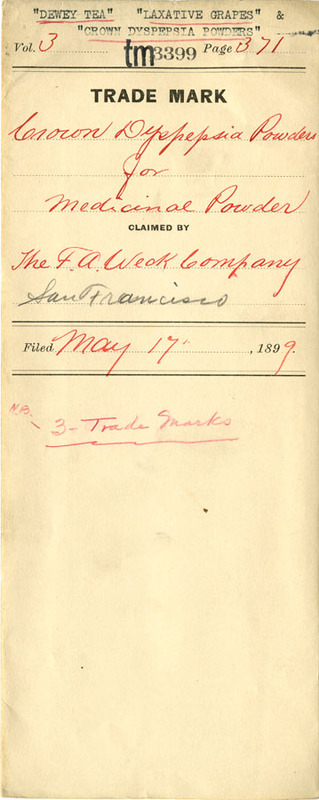 "DEWEY TEA" "LAXATIVE GRAPES" &
"CROWN DYSPERSIA POWDERS"
Vol. 3 tm3399 Page 371
TRADE MARK
Crown Dyspepsia Powders
for
Medicinal Powder
CLAIMED BY
The F. A. Weck Company
San Francisco
Filed May 17 , 1899.
N.B. 3 - Trade Marks